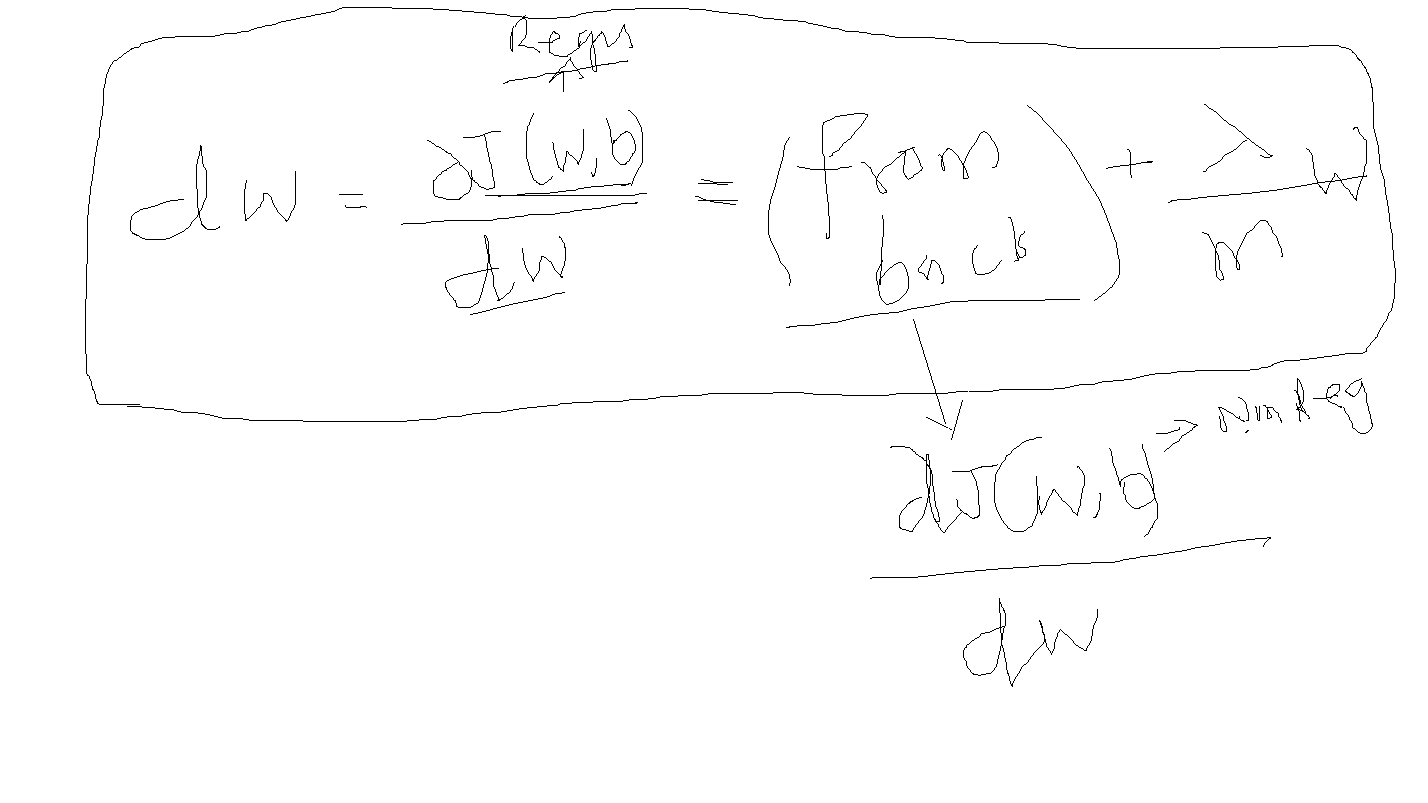 Regu
dw = ∂J(w,b) / dw = (from back) + λ/m w
dJ(w,b) → Non Reg
dw